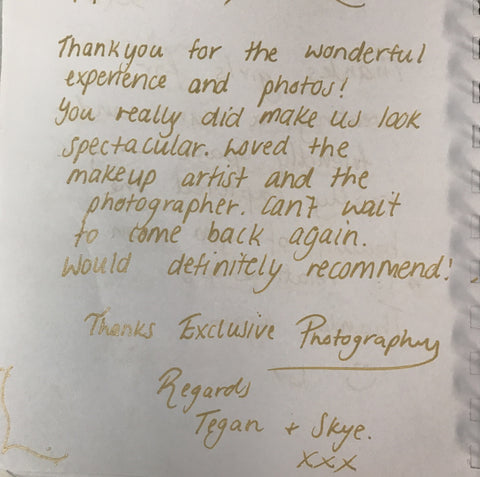 Thankyou for the wonderful
experience and photos!
You really did make us look
spectacular. Loved the
makeup artist and the
photographer. Can't wait
to come back again.
Would definitely recommend!
Thanks Exclusive Photography
Regards
Tegan + Skye.
xxx